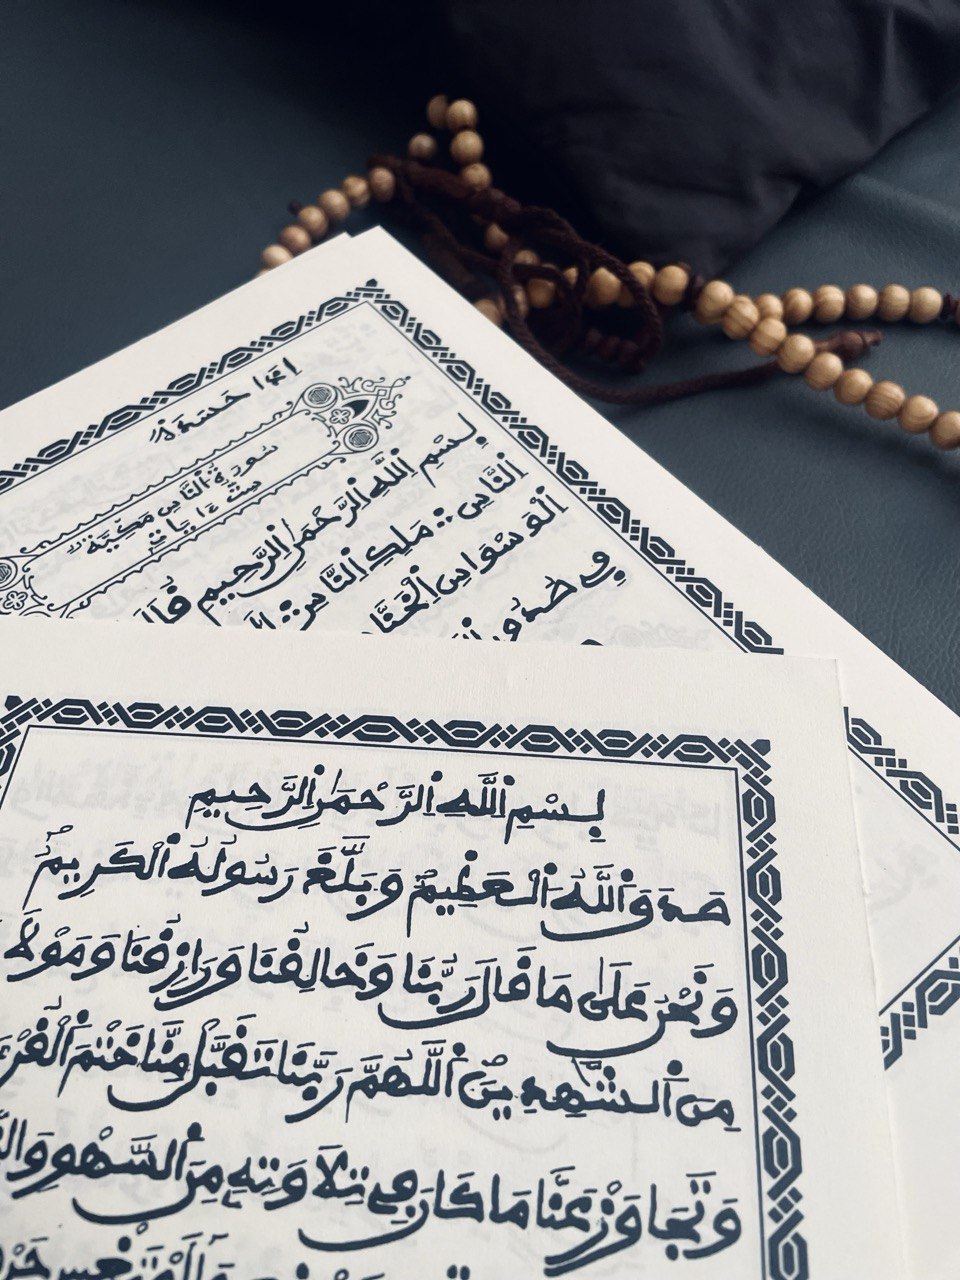 سُورَةُ اَلنَّاسِ مَكِّيَّةٌ
سِتُّ ءَايَاتٍ
بِسْمِ اِللَّهِ اِلرَّحْمَٰنِ اِلرَّحِيمِ
اِلنَّاسِ مَلِكِ اِلنَّاسِ
اَلْوَسْوَاسِ
فِي صُدُورِ
بِسْمِ اِللَّهِ اِلرَّحْمَٰنِ اِلرَّحِيمِ
صَدَقَ اَللَّهُ اُلْعَظِيمُ وَبَلَّغَ رَسُولُهُ اُلْكَرِيمُ
وَنَحْنُ عَلَىٰ مَا قَالَ رَبُّنَا وَخَالِقُنَا وَرَازِقُنَا وَمَوْلَا
مِنَ اَلشَّٰهِدِينَ اَللَّهُمَّ رَبَّنَا تَقَبَّلْ مِنَّا خَتْمَ اَلْقُرْءَ
وَتَجَاوَزْ عَنَّا مَا كَانَ فِي تِلَاوَتِهِ مِنَ اَلسَّهْوِ